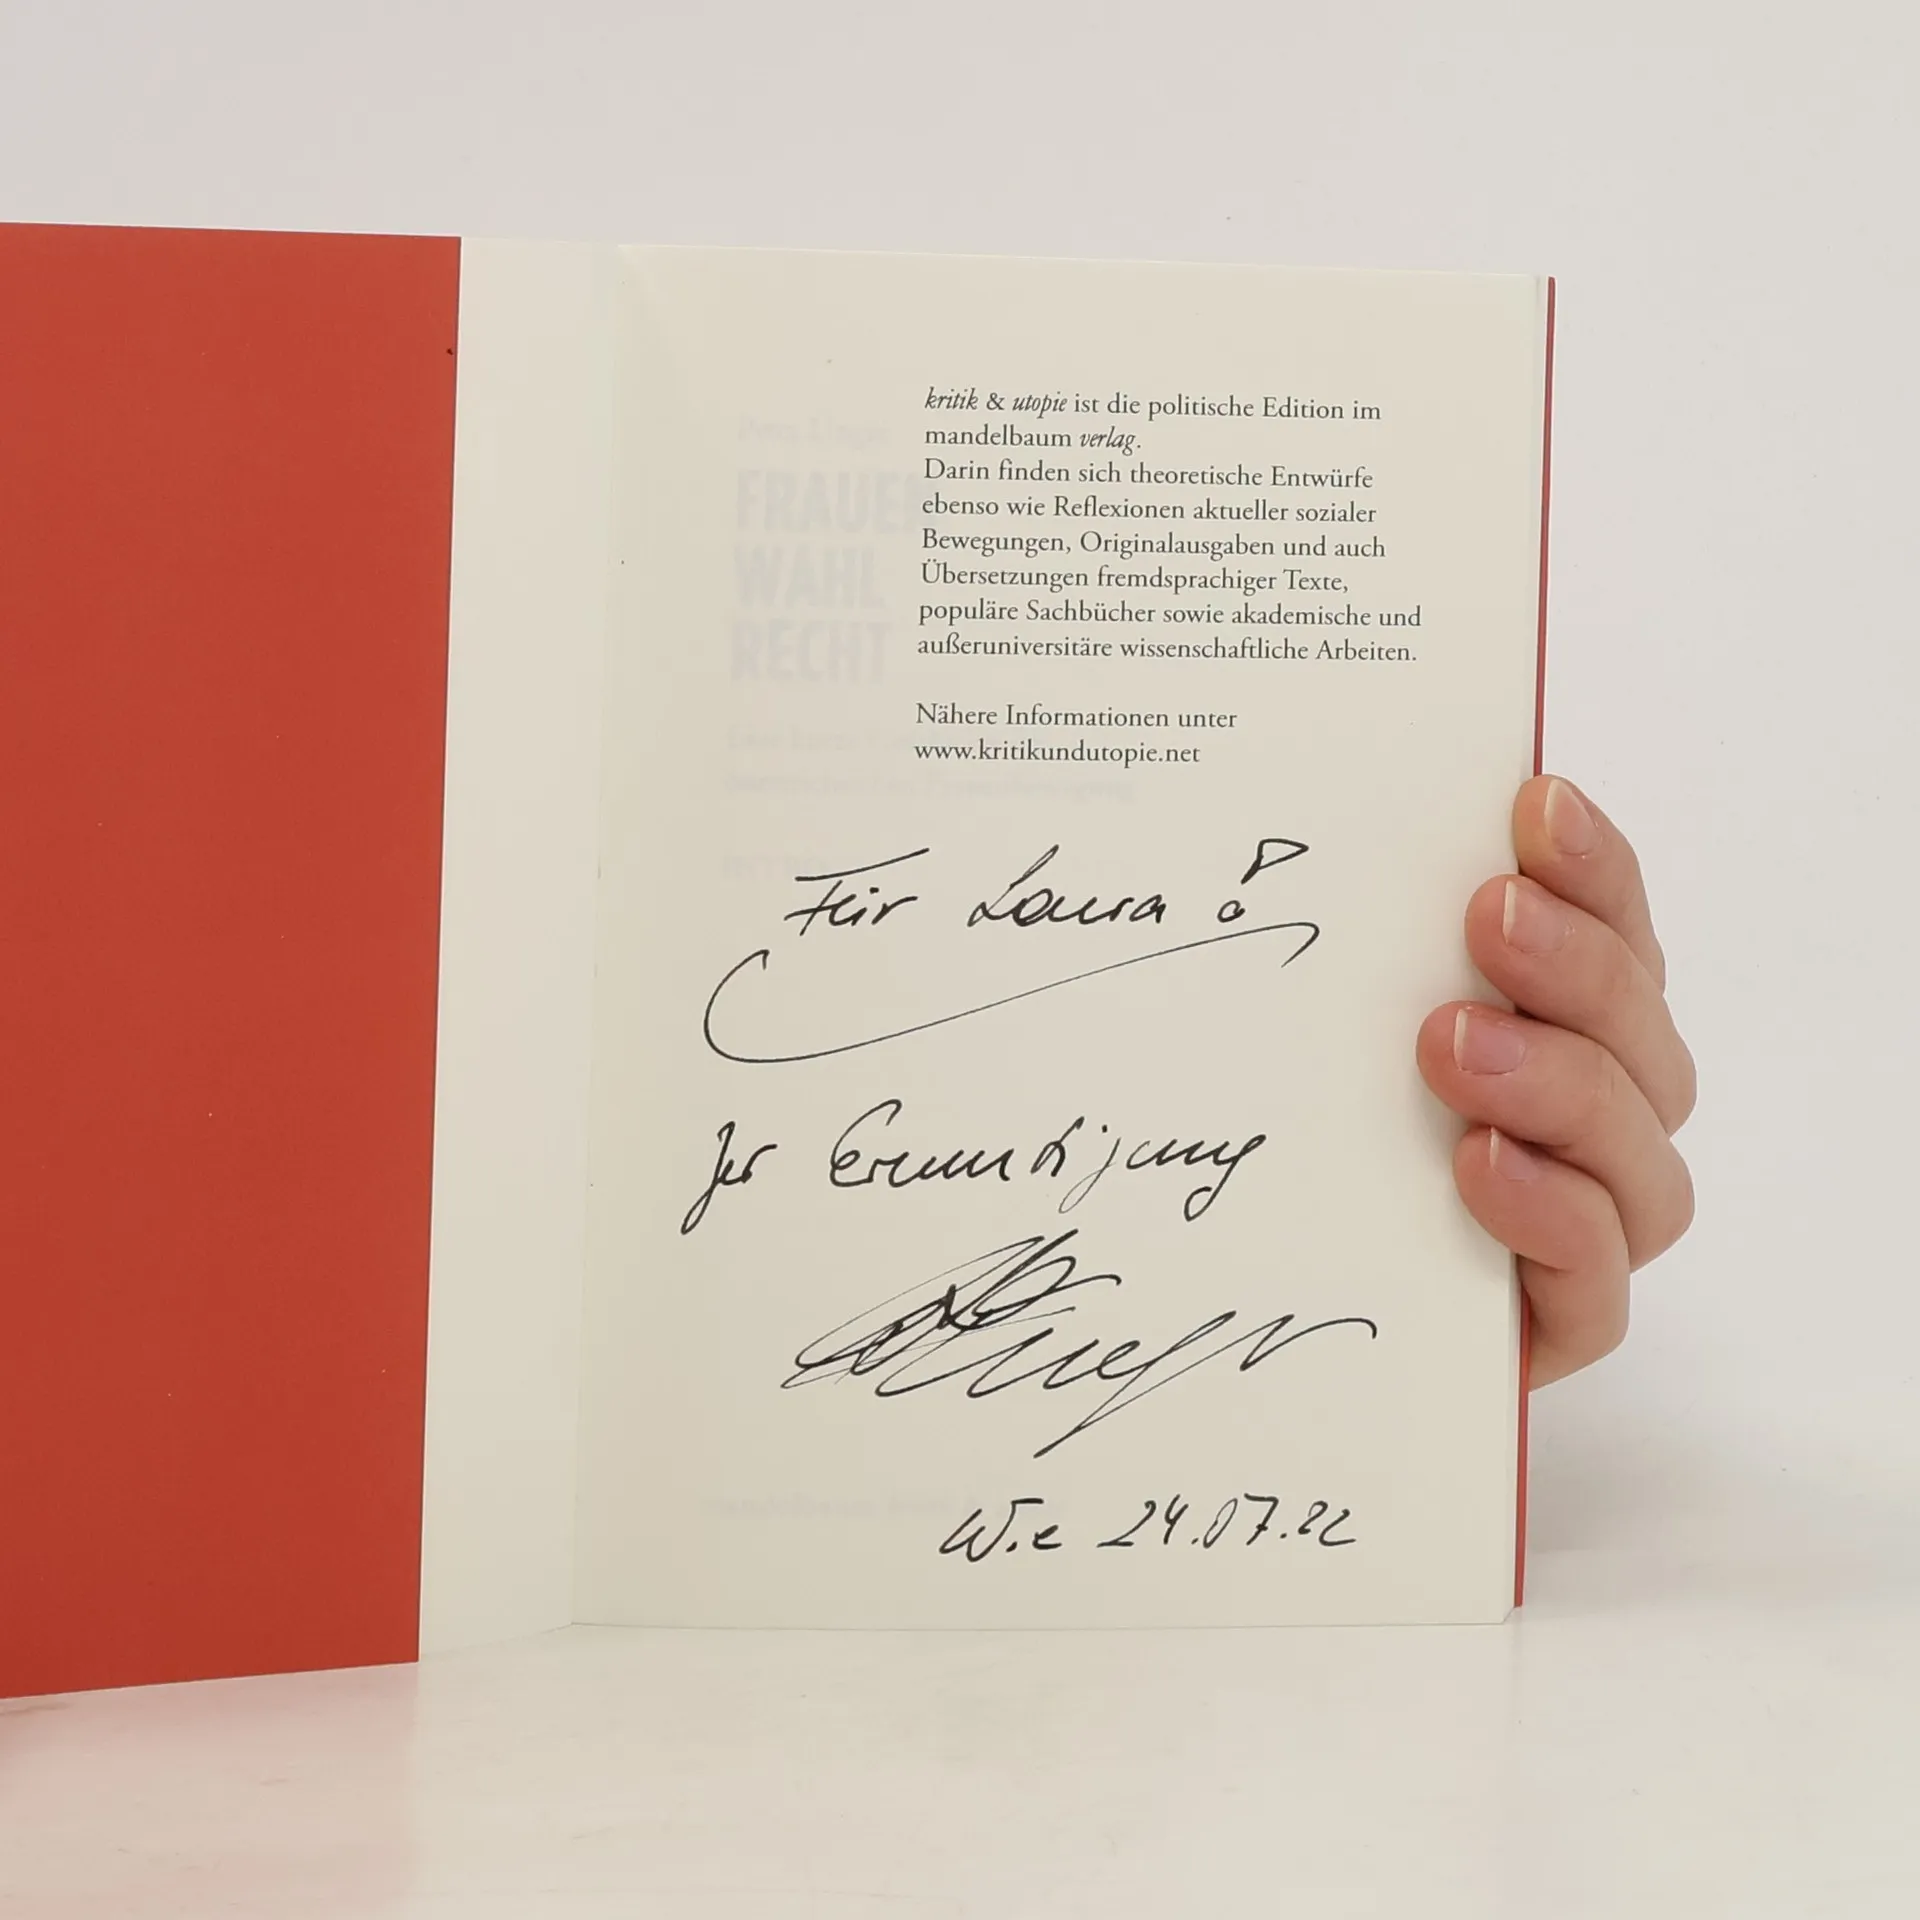 kritik & utopie ist die politische Edition im
mandelbaum verlag.
Darin finden sich theoretische Entwürfe
ebenso wie Reflexionen aktueller sozialer
Bewegungen, Originalausgaben und auch
Übersetzungen fremdsprachiger Texte,
populäre Sachbücher sowie akademische und
außeruniversitäre wissenschaftliche Arbeiten.
Nähere Informationen unter
www.kritikundutopie.net
FRAUEN
WAHL
RECHT
Für Laura!
Zur Ermutigung
Wie 24.07.22